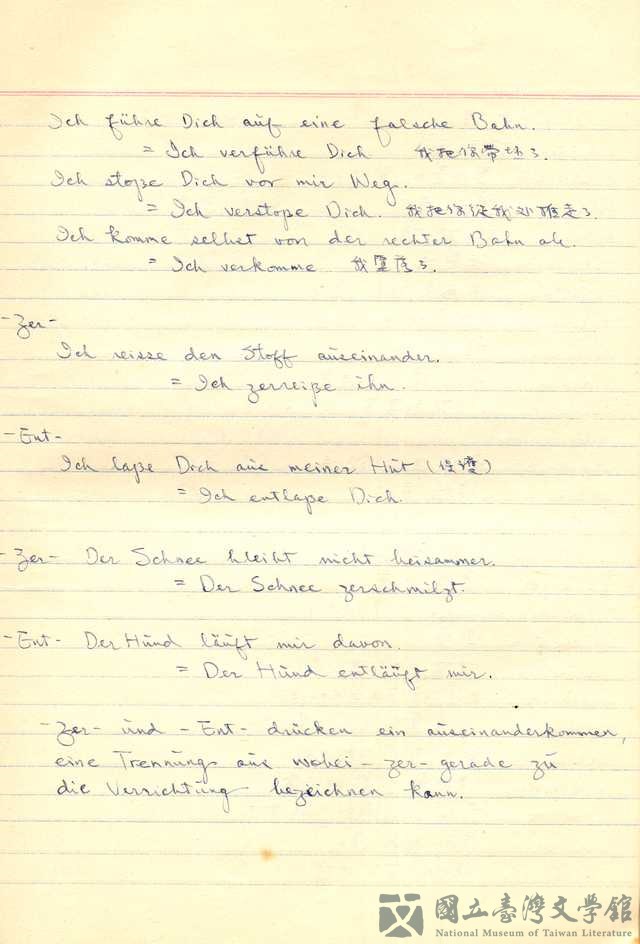 Ich führe Dich auf eine falsche Bahn.
= Ich verführe Dich 我把你帶坏了.
Ich stoße Dich vor mir Weg.
= Ich verstoße Dich. 我把你從我处推走了.
Ich komme selbst von der rechter Bahn ab.
= Ich verkomme 我墮落了.
-Zer-
Ich reisse den Stoff auseinander.
= Ich zerreiße ihn.
-Ent-
Ich laße Dich aus meiner Hut (保護)
= Ich entlaße Dich.
-Zer- Der Schnee bleibt nicht beisammen.
= Der Schnee zerschmilzt.
-Ent- Der Hund läuft mir davon.
= Der Hund entläuft mir.
-Zer- und -Ent- drücken ein auseinanderkommen,
eine Trennung aus wobei -zer- gerade zu
die Verrichtung bezeichnen kann.
國立臺灣文學館
National Museum of Taiwan Literature